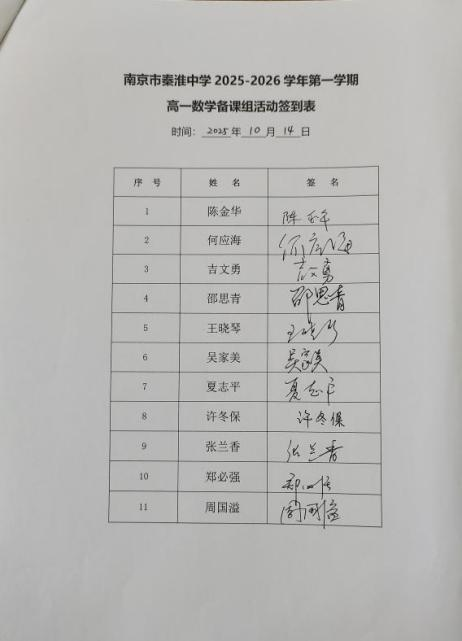 南京市秦淮中学 2025-2026 学年第一学期
高一数学备课组活动签到表
时间：2025 年 10 月 14 日
序 号 姓 名 签 名
1 陈金华 陈金华
2 何应海 何应海
3 吉文勇 吉文勇
4 邵思青 邵思青
5 王晓琴 王晓琴
6 吴家美 吴家美
7 夏志平 夏志平
8 许冬保 许冬保
9 张兰香 张兰香
10 郑必强 郑必强
11 周国溢 周国溢